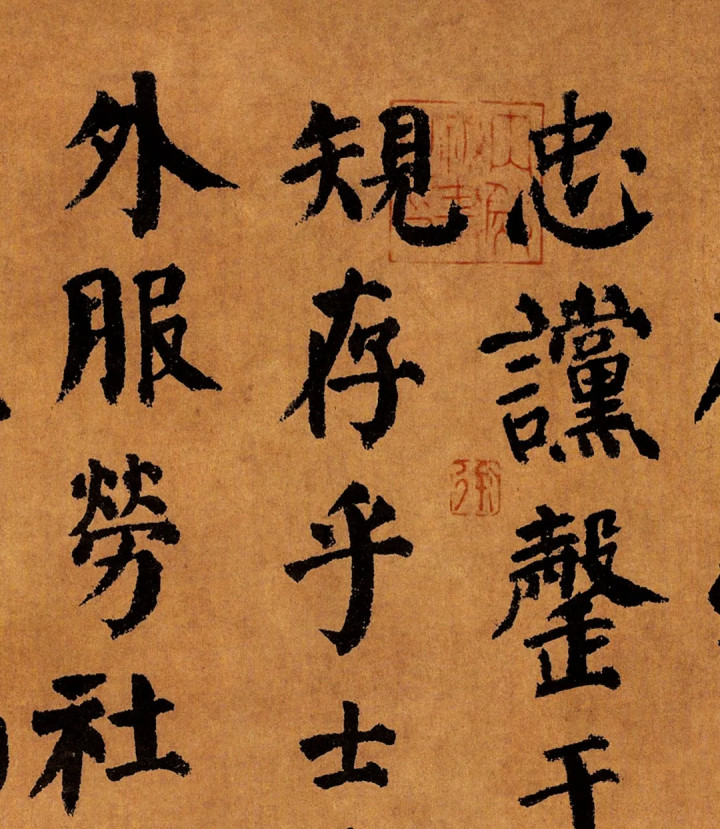 忠讜罄于
規存乎士
外服勞社